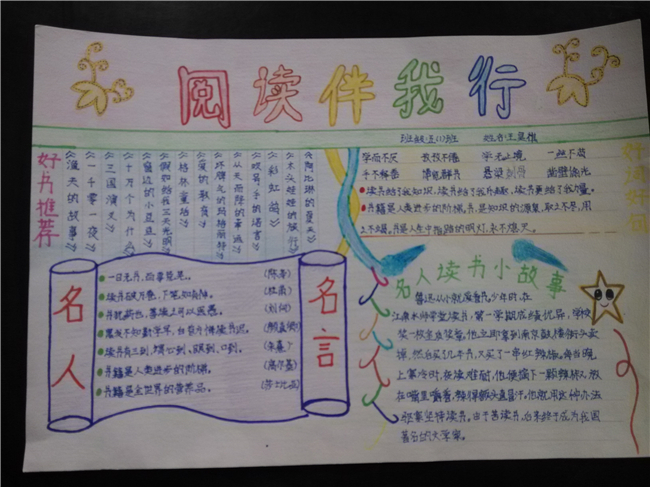 阅读伴我行
班级:五(1)班 姓名:王
好书推荐
《渔夫的故事》
《一千零一夜》
《三国演义》
《十万个为什么》
《窗边的小豆豆》
《假如给我三天光明》
《格林童话》
《爱的教育》
《坏脾气的格丽那》
《从天而降的幸福》
《吹号手的诺言》
《彩虹鸽》
《木头娃娃的旅行》
《陶比琳的夏天》
好词好句
学而不厌 孜孜不倦 学无止境 一丝不苟
手不释卷 博览群书 悬梁刺骨 凿壁偷光
读书给了我知识,读书给了我乐趣,读书更给了我力量。
书籍是人类进步的阶梯,书,是知识的源泉,取之不尽,用
之不竭,书是人生中指路的明灯,永不熄灭。
名人名言
一日无书,百事荒芜。 (陈寿)
读书破万卷,下笔如有神。 (杜甫)
书犹药也,善读之可以医愚。 (刘向)
黑发不知勤学早,白首方悔读书迟。 (颜真卿)
读书有三到,谓心到,眼到,口到。 (朱熹)
书籍是人类进步的阶梯。 (高尔基)
书籍是全世界的营养品。 (莎士比亚)
名人读书小故事
鲁迅从小就爱看书,少年时,在
江南水师学堂读书,第一学期成绩优异,学校
奖一枚金质奖章,他立即拿到南京鼓楼街头卖
掉,然后买几本书,又买了一串红辣椒。每当晚
上寒冷时,夜读难耐,他便摘下一颗辣椒,放
在嘴里嚼着,辣得额头直冒汗。他就用这种办法
驱寒坚持读书。由于苦读书,后来终于成为我国
著名的文学家。